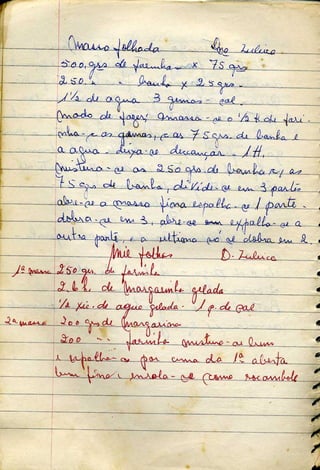 Massa folhada Dna Zulica.
500, grs de farinha x 75 grs
250. " " banha x 25 grs.
1/2 de agua 3 gemas - sal.
modo de fazer, amassa-se o 1/2 k. de fari
nha, e as gemas, e as 75 grs. de banha e
a agua. deixa-se descançar. 1 H,
mistura-se as 250 grs. de banha x, as
75 grs de banha, divide-se em 3 partes
abre-se a massa fina espalha-se 1 parte.
dobra-se em 3, abre-se em espalha-se a
outra parte, e a ultima só se dobra em 2.
Mil folhas D. Zulica
1ª massa 250 gr. de farinha
2 k. de margarinha gelada
1/2 xic. de agua gelada. 1 p. de sal
2ª massa 200 grs de margarina
200 " " farinha mistura-se bem
e espalha-a por cima da 1ª aberta
bem fina e enrola-se como rocambole